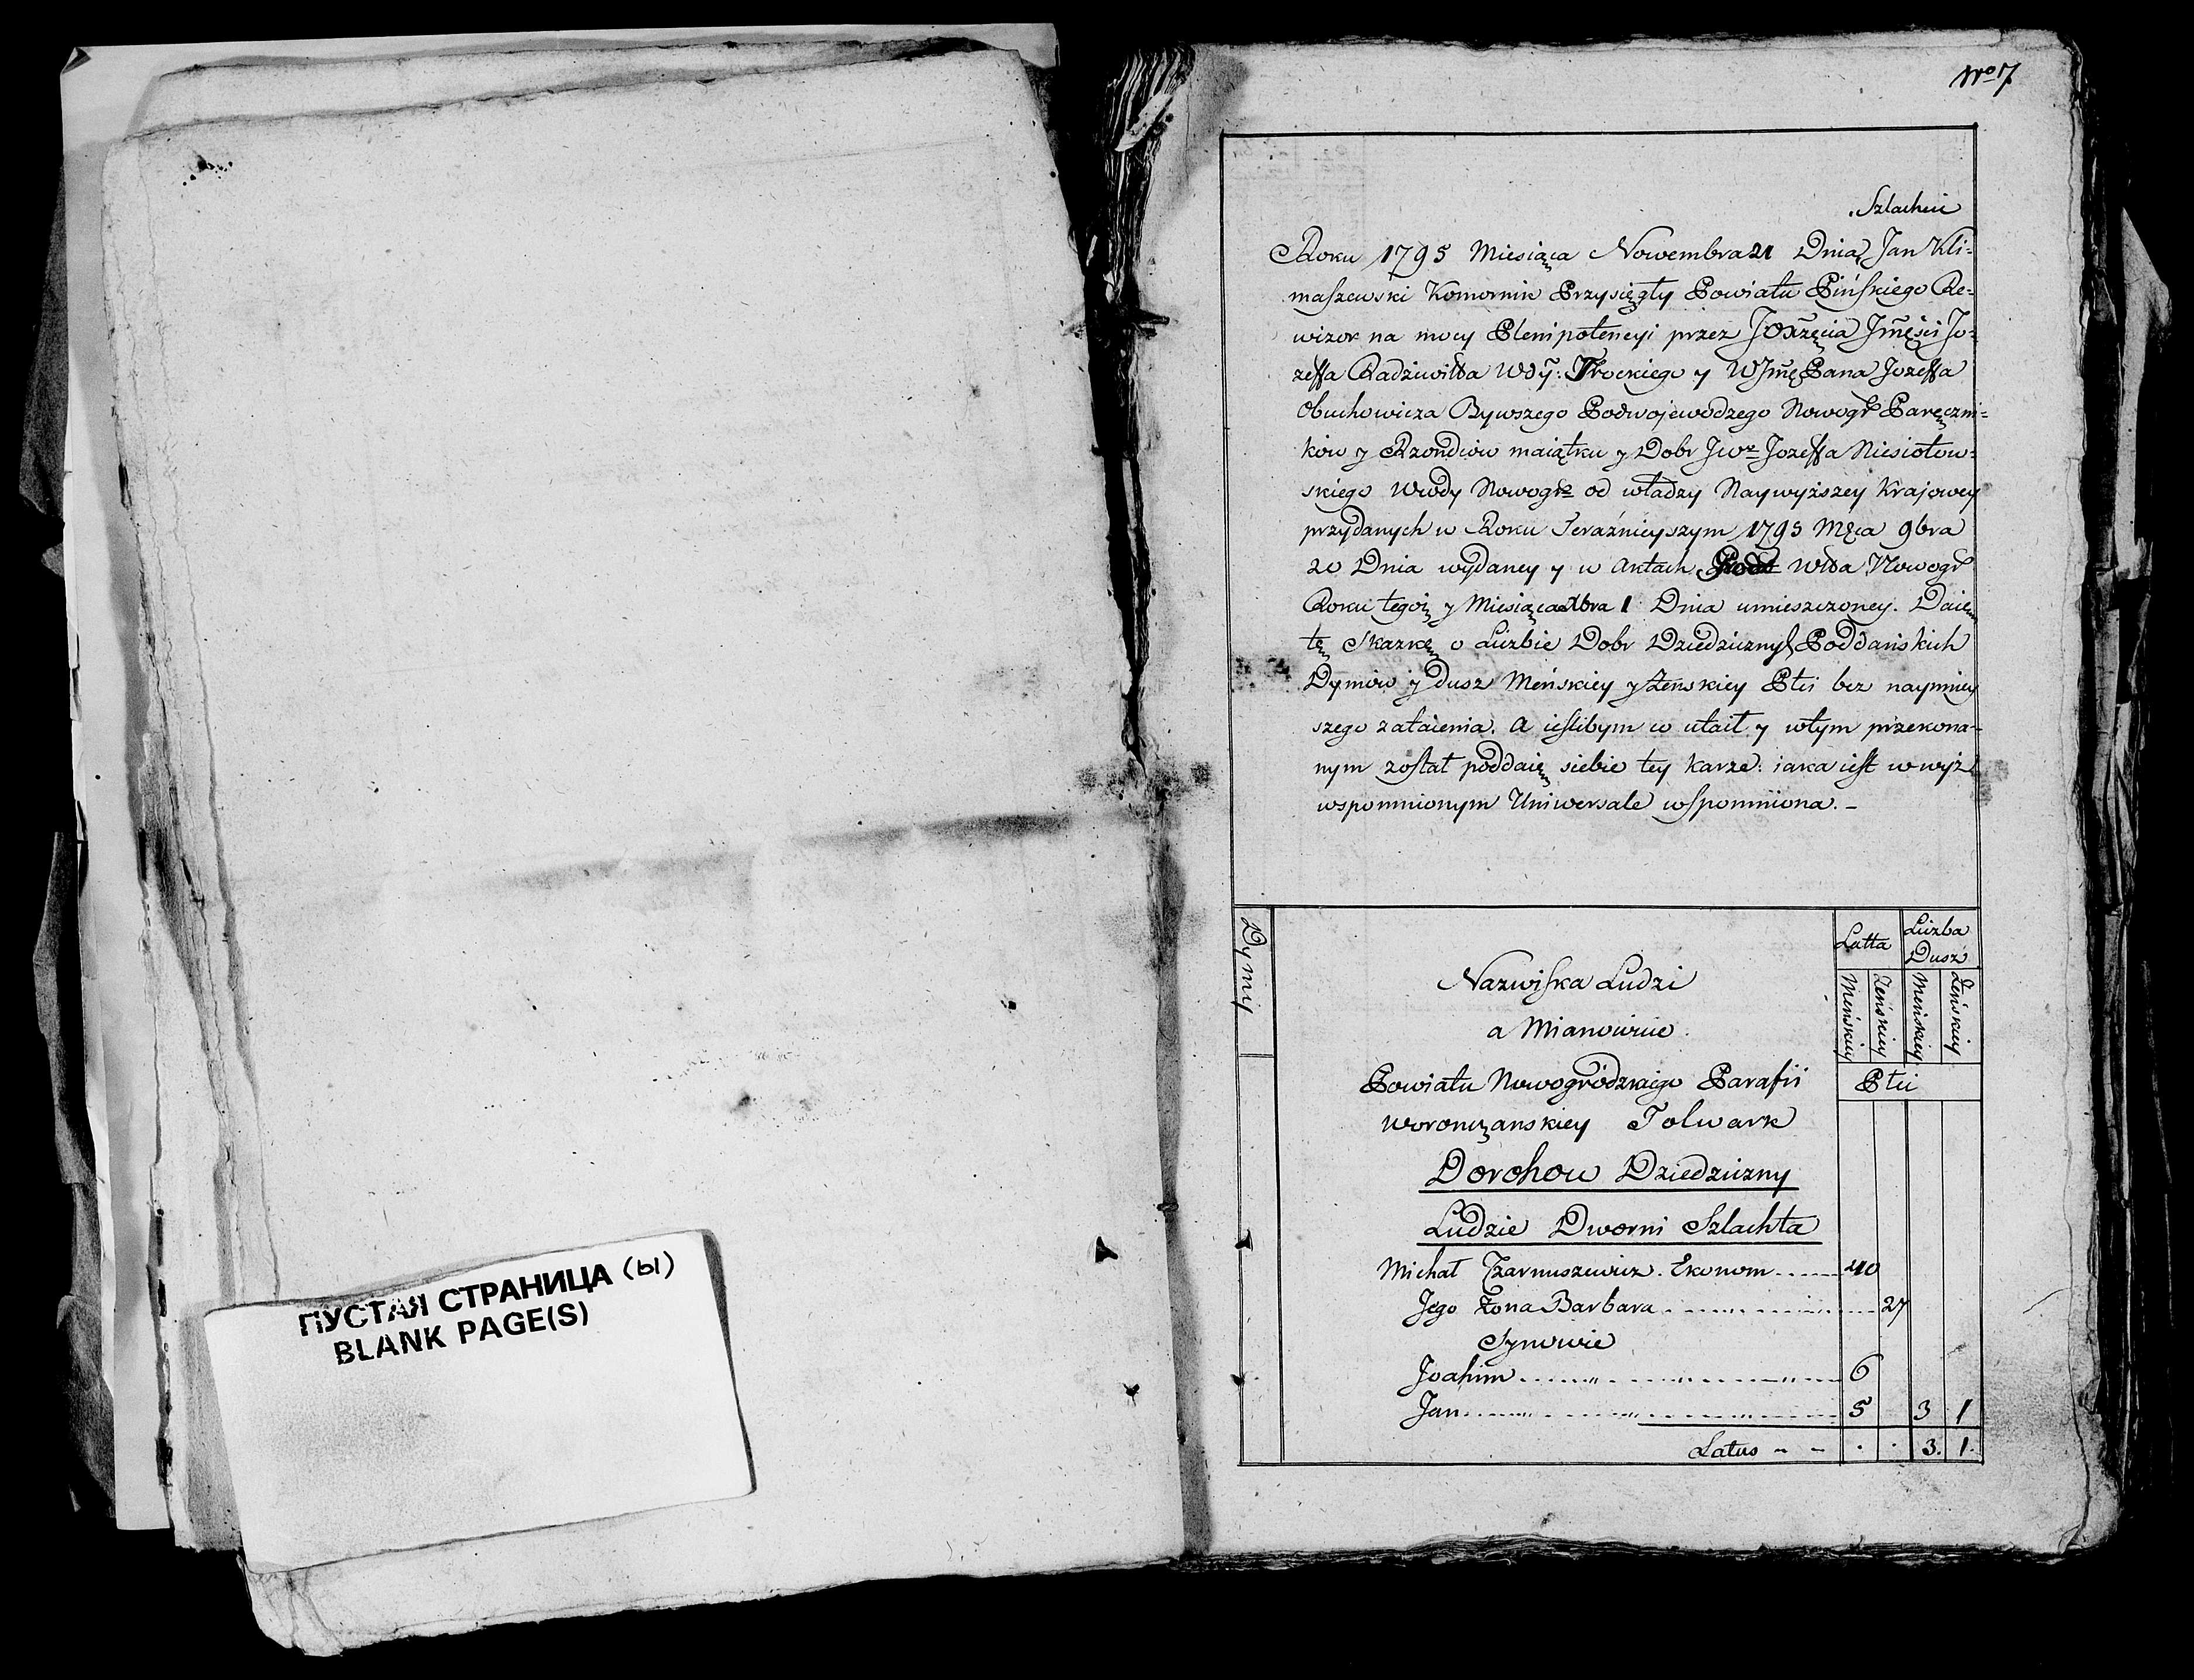 ПУСТАЯ СТРАНИЦА (ы)
BLANK PAGE(S)
No 7
Szlachci
Roku 1795 Miesiąca Nowembra 21 Dnia Jan Kli=
maszewski Komornik Przysięgły Powiatu Pińskiego Re=
wizor na mocy Plenipotencyi przez JOXżęcia Jmści Jo=
zeffa Radziwiłła Wdy: Trockiego y WJmę Pana Jozeffa
Obuchowicza Bywszego Podwojewodzego Nowogr Paręczni=
kow y Rzondcow maiątku y Dobr JW Jozeffa Niesiołow=
skiego Wwdy Nowogr od władzy Naywyższey Krajowey
przydanych w Roku Teraźnieyszym 1795 Męca 9bra
20 Dnia wydaney y w Aktach Wda Nowogr
Roku tegoż y Miesiąca Xbra 1 Dnia umieszczoney. Daię
tę Skazkę o Liczbie Dobr Dziedziczny Poddańskich
Dymow y dusz Meńskiey y Zenskiey Płci bez naymniey
szego zataienia. A ieslibym co utaił y w tym przekona=
nym został poddaię siebie tey karze: iaka iest w wyż
wspomnionym Uniwersale wspomniiona. –
Dymy
Nazwiska Ludzi
a Mianowicie
Latta
Liczba
Dusz
Meńskiey
Zeńskiey
Meńskiey
Zeńskiey
Powiatu Nowogródzkiego Parafii
Płci
Woronczanskiey Folwark
Dorohow Dziedziczny
Ludzie Dworni Szlachta
Michał Czarnuszewicz. Ekonom 40
Jego Żona Barbara 27
Synowie
Joahim 6
Jan 5 3 1
Latus - - . . 3. 1.